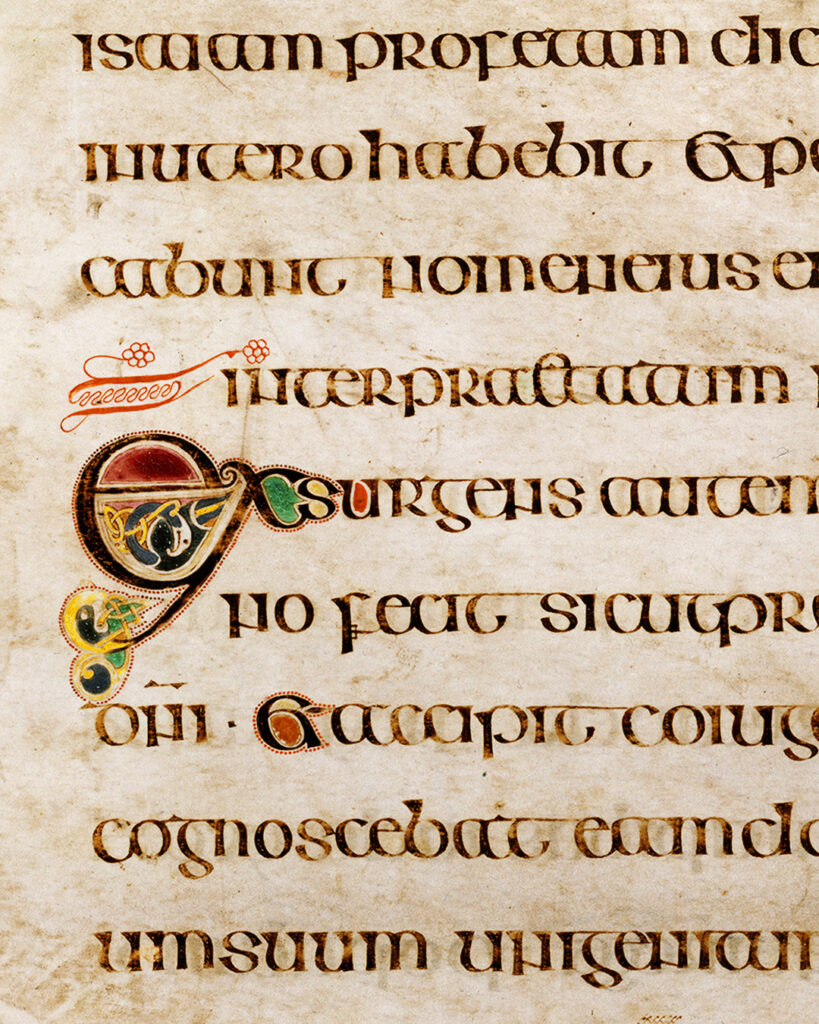 isaiam profetam dic
inutero habebit &p
cabunt nomeneius e
interpraetatum
Exsurgens autem
no fecit sicutpre
dn̄i · & accipit coiug
cognoscebat eamdo
umsuum unigenitum